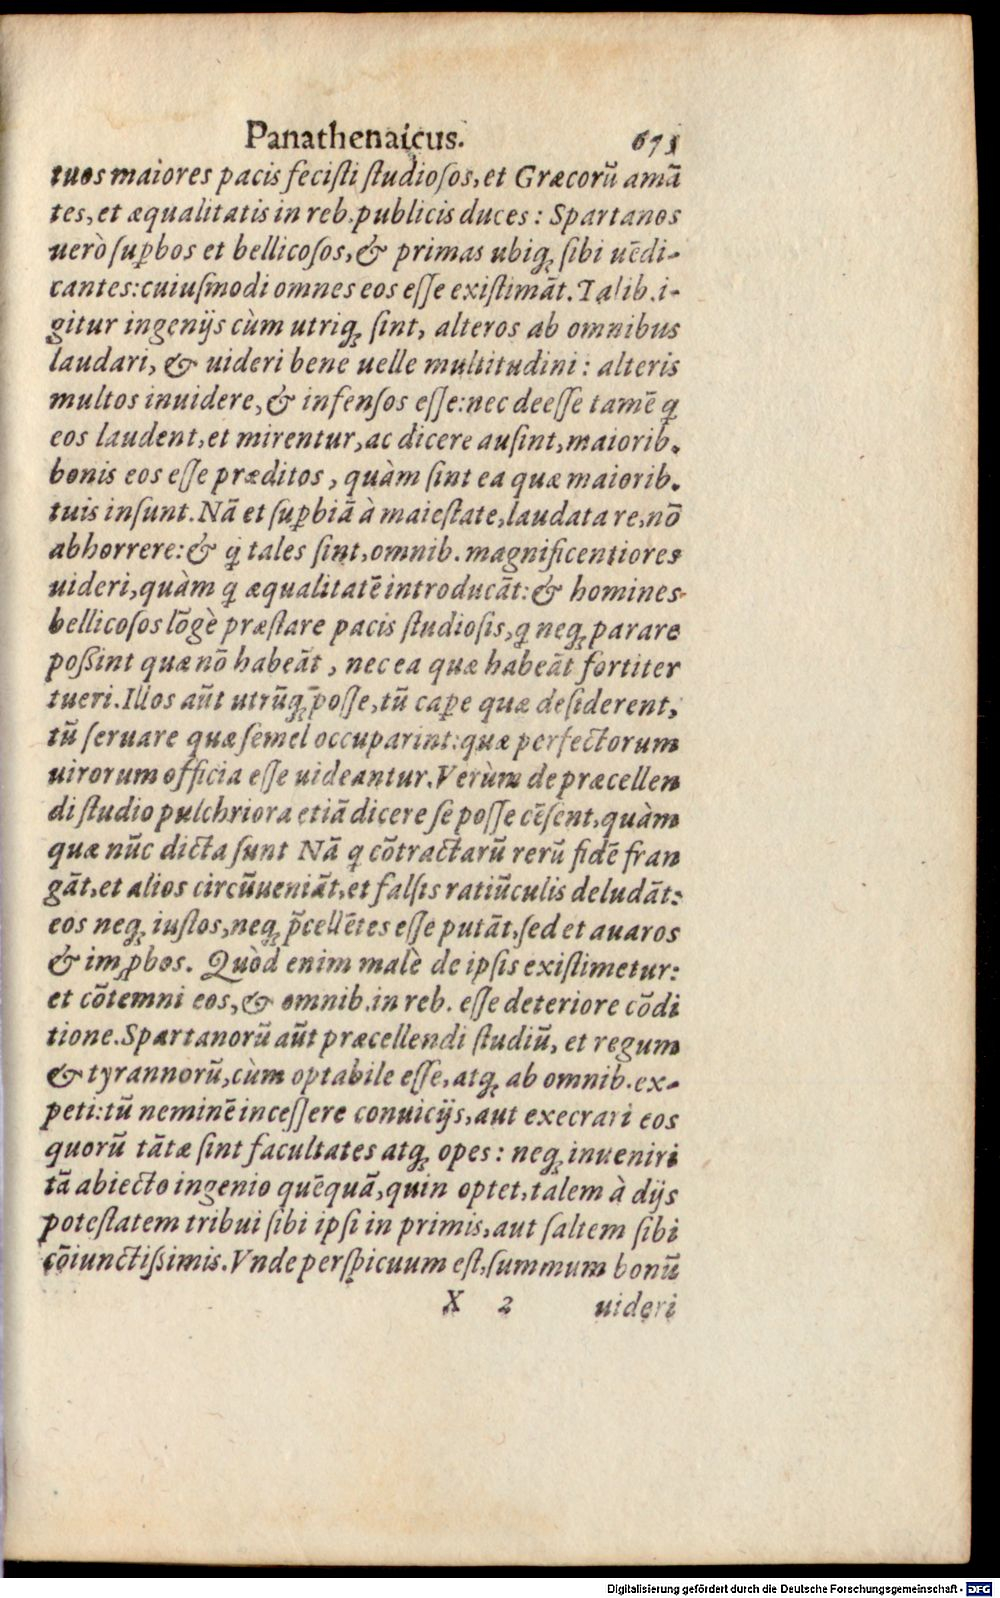 Panathenaicus. 671
tuos maiores pacis fecisti studiosos, et Græcorũ amã
tes, et æqualitatis in reb. publicis duces: Spartanos
uerò suꝑbos et bellicosos, & primas ubiqꝫ sibi uẽdi-
cantes: cuiusmodi omnes eos esse existimãt. Talib. i-
gitur ingenijs cùm utriqꝫ sint, alteros ab omnibus
laudari, & uideri bene uelle multitudini: alteris
multos inuidere, & infensos esse: nec deesse tamẽ q̃
eos laudent, et mirentur, ac dicere ausint, maiorib.
bonis eos esse præditos, quàm sint ea quæ maiorib.
tuis insunt. Nã et suꝑbiã à maiestate, laudata re, nõ
abhorrere: & q̃ tales sint, omnib. magnificentiores
uideri, quàm q̃ æqualitatẽ introducãt: & homines
bellicosos lõgè præstare pacis studiosis, q̃ neqꝫ parare
possint quæ nõ habeãt, nec ea quæ habeãt fortiter
tueri. Illos aũt utrũqꝫ posse, tũ caꝑe quæ desiderent,
tũ seruare quæ semel occuparint: quæ perfectorum
uirorum officia esse uideantur. Verùm de præcellen
di studio pulchriora etiã dicere se posse cẽsent, quàm
quæ nũc dicta sunt Nã q̃ cõtractarũ rerũ fidẽ fran
gãt, et alios circũueniãt, et falsis ratiũculis deludãt:
eos neqꝫ iustos, neqꝫ p̃cellẽtes esse putãt, sed et auaros
& imꝓbos. Quòd enim malè de ipsis existimetur:
et cõtemni eos, & omnib. in reb. esse deteriore cõdi
tione. Spartanorũ aũt præcellendi studiũ, et regum
& tyrannorũ, cùm optabile esse, atqꝫ ab omnib. ex-
peti: tũ neminẽ incessere conuicijs, aut execrari eos
quorũ tãtæ sint facultates atqꝫ opes: neqꝫ inueniri
tã abiecto ingenio quẽquã, quin optet, talem à dijs
potestatem tribui sibi ipsi in primis, aut saltem sibi
cõiunctissimis. Vnde perspicuum est, summum bonũ
X 2 uideri
Digitalisierung gefördert durch die Deutsche Forschungsgemeinschaft - DFG